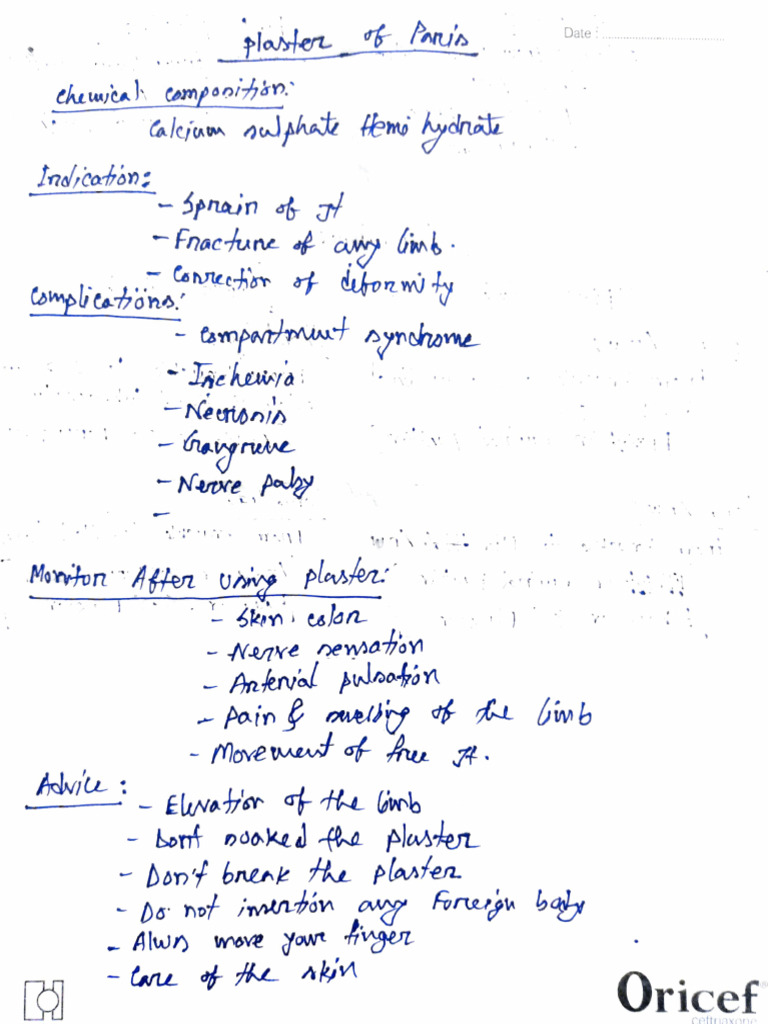 Plaster of Paris
Date :
Chemical composition:
Calcium sulphate Hemi hydrate
Indication:
- Sprain of Jt
- Fracture of any limb.
- Correction of deformity
Complications:
- Compartment syndrome
- Ischemia
- Necrosis
- Gangrene
- Nerve palsy
-
Monitor After using plaster:
- Skin color
- Nerve sensation
- Arterial pulsation
- Pain & swelling of the limb
- Movement of free Jt.
Advice :
- Elevation of the limb
- Dont soaked the plaster
- Don't break the plaster
- Do not insertion any Foreign body
- Alwys move your finger
- Care of the skin
Oricef
ceftriaxone